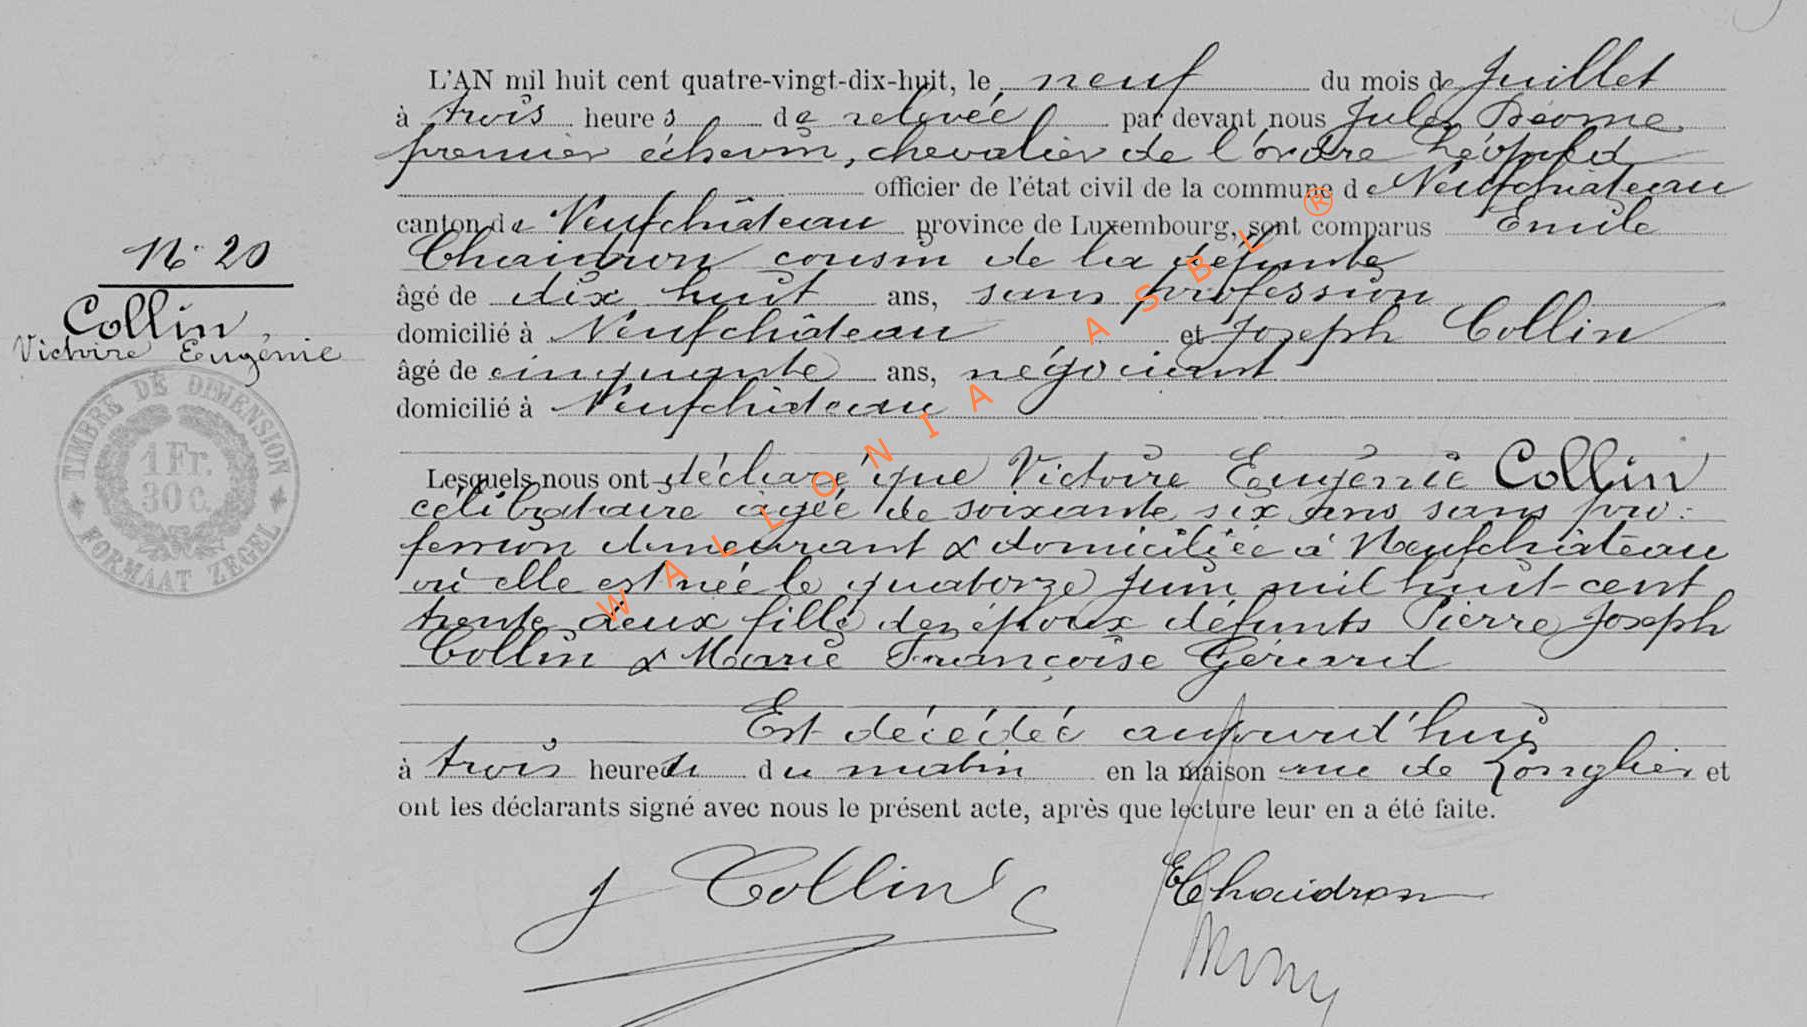 L'AN mil huit cent quatre-vingt-dix-huit, le neuf du mois de Juillet
à trois heures de relevée par devant nous Jules Déome
premier échevin, chevalier de l'ordre Léopold
officier de l'état civil de la commune de Neufchâteau
canton de Neufchâteau province de Luxembourg, sont comparus Emile
Chaidron cousin de la défunte
âgé de dix huit ans, sans profession
domicilié à Neufchâteau et Joseph Collin
âgé de cinquante ans, négociant
domicilié à Neufchâteau
N° 20
Collin,
Victoire Eugénie
TIMBRE DE DIMENSION
1 Fr.
30 c.
FORMAAT ZEGEL
Lesquels nous ont déclaré que Victoire Eugénie Collin
célibataire agée de soixante six ans sans pro-
fession demeurant & domiciliée à Neufchâteau
où elle est née le quatorze Juin mil huit-cent
trente deux fille des époux défunts Pierre Joseph
Collin & Marie Françoise Gérard
Est décédée aujourd'hui
à trois heures du matin en la maison rue de Longlier et
ont les déclarants signé avec nous le présent acte, après que lecture leur en a été faite.
J Collin
EChaidron
WALLONIA ASBL ®